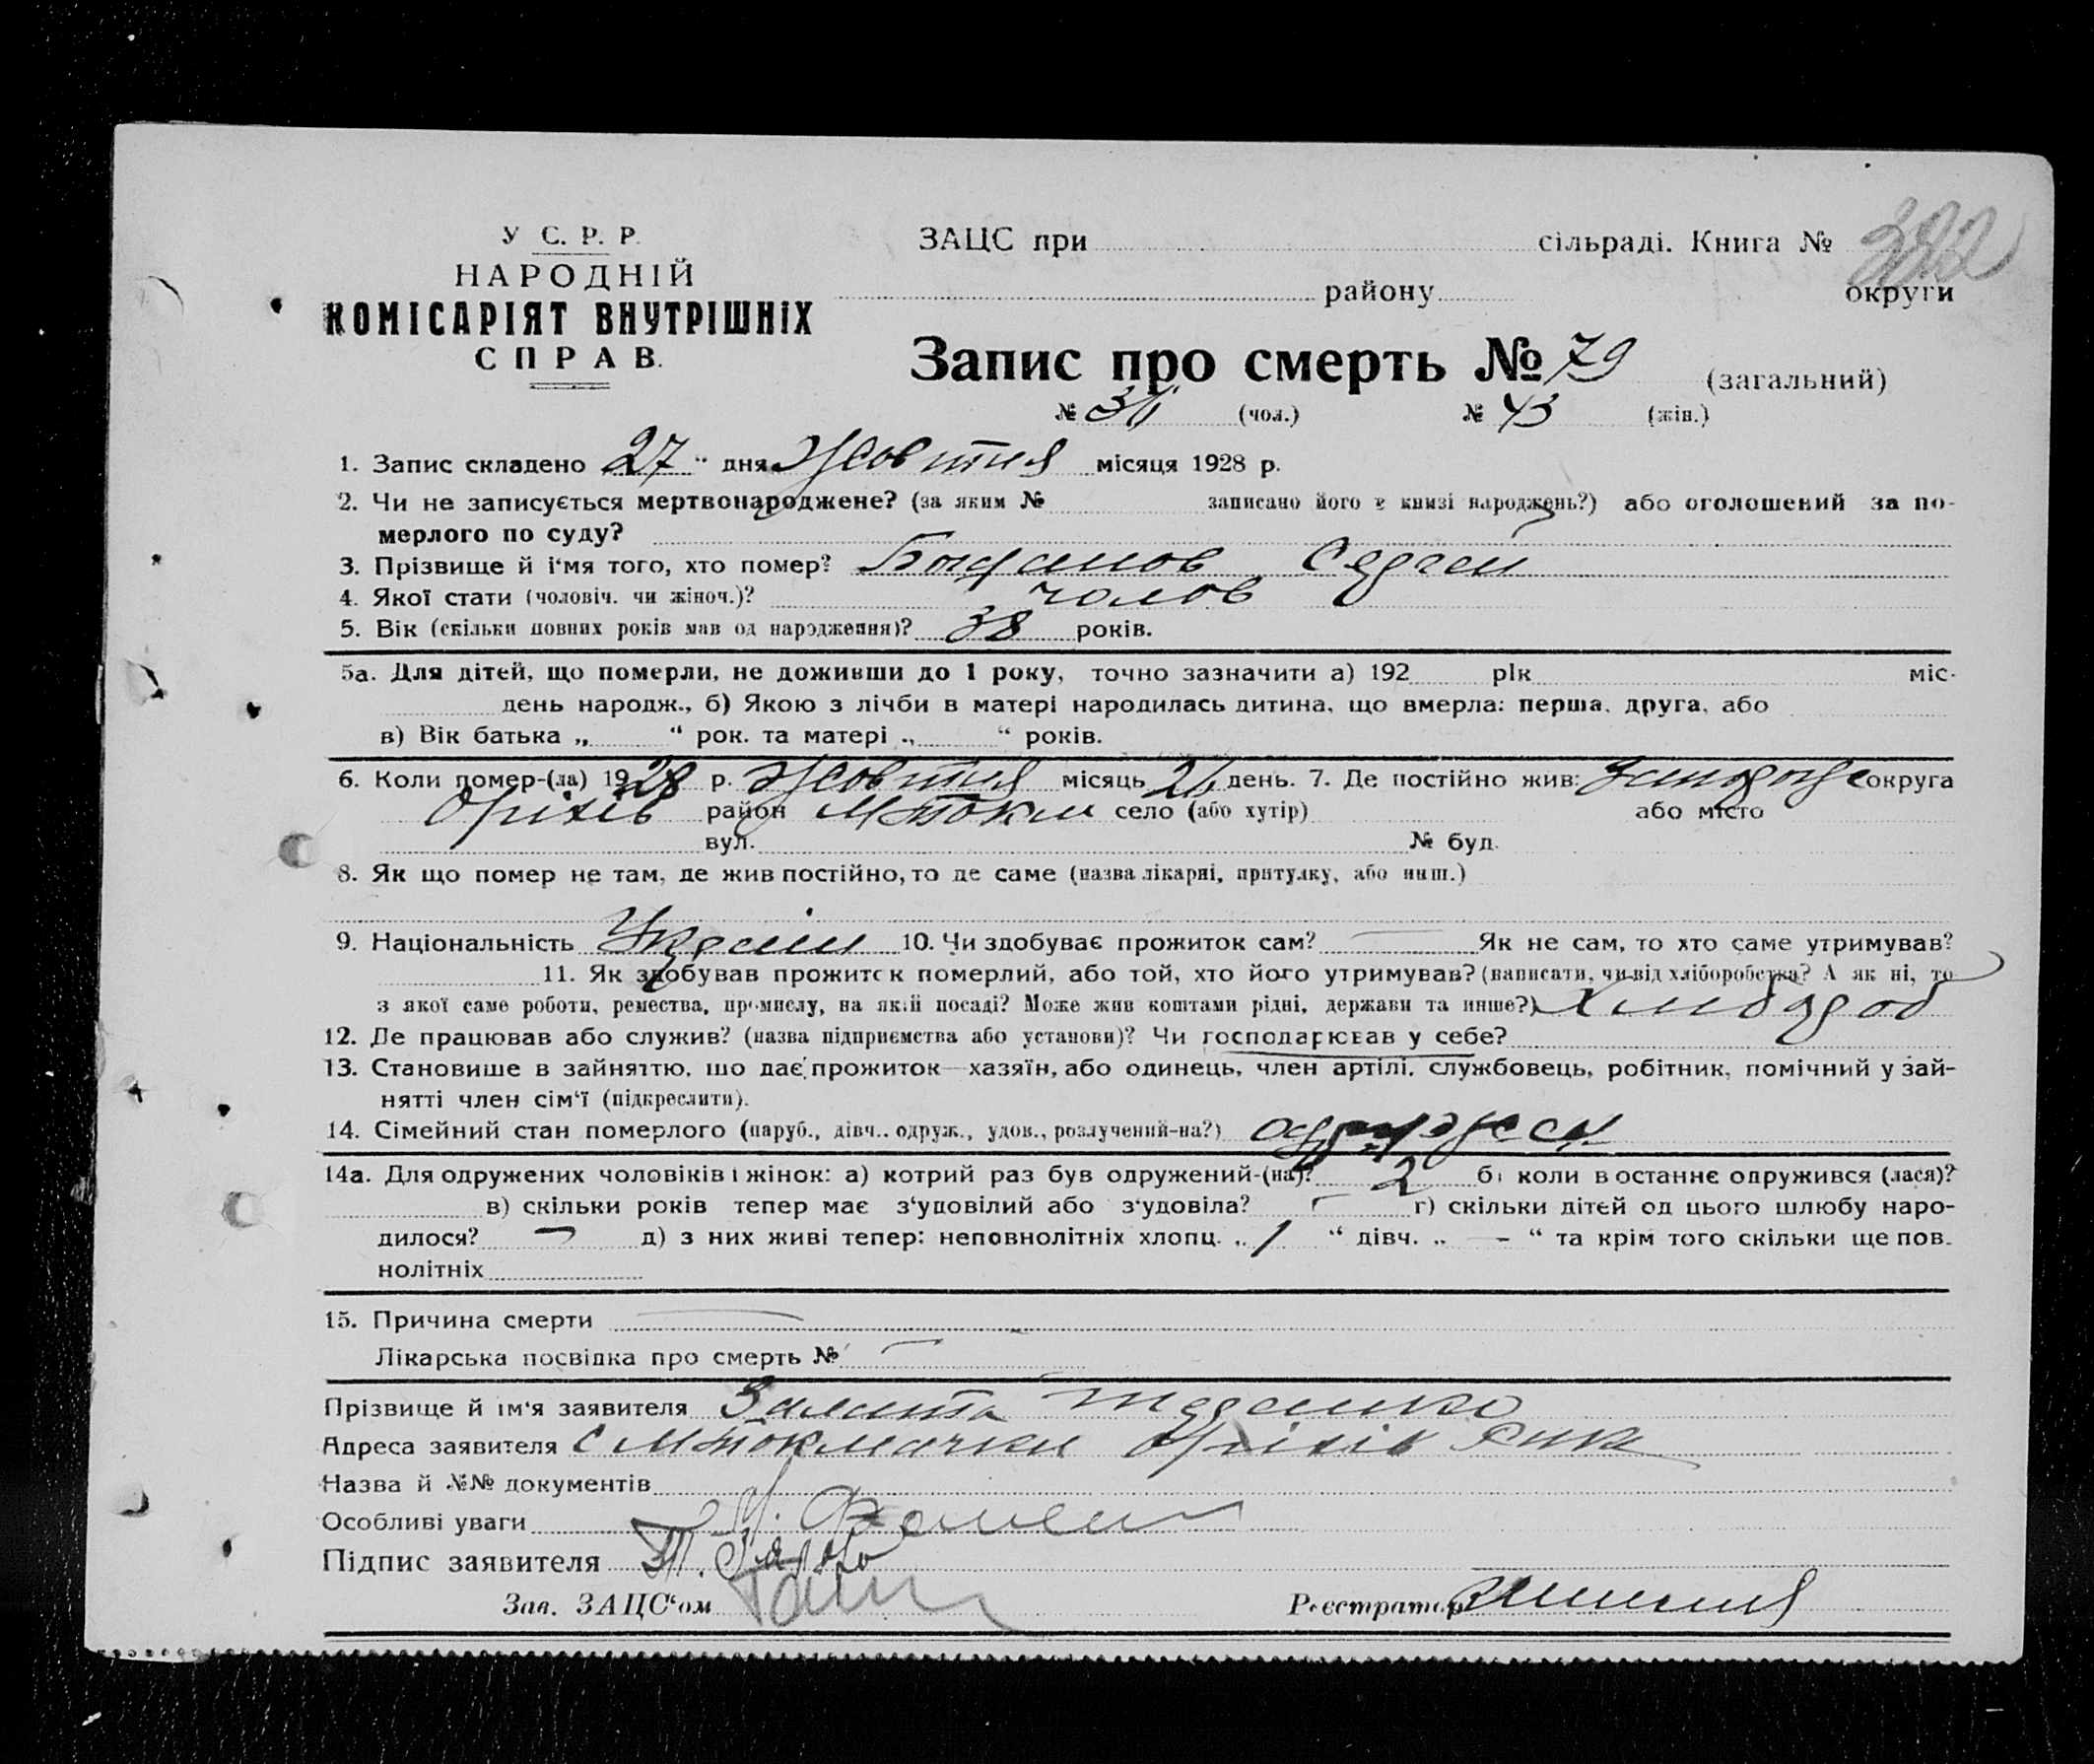 У С. Р. Р.
НАРОДНІЙ
КОМІСАРІЯТ ВНУТРІШНІХ
СПРАВ.
ЗАЦС при сільраді. Книга №
району округи
Запис про смерть № 79 (загальний)
№ 36 (чол.) № 43 (жін.)
1. Запис складено 27 " дня Жовтня місяця 1928 р.
2. Чи не записується мертвонароджене? (за яким № записано його в книзі народжень?) або оголошений за по-
мерлого по суду?
3. Прізвище й і‘мя того, хто помер? Сергей
4. Якої стати (чоловіч. чи жіноч.)? чолов
5. Вік (скільки повних років мав од народження)? 38 років.
5а. Для дітей, що померли, не доживши до 1 року, точно зазначити а) 192 рік міс-
день народж., б) Якою з лічби в матері народилась дитина, що вмерла: перша, друга, або
в) Вік батька „ “ рок. та матері „ “ років.
6. Коли помер-(ла) 1928 р. Жовтня місяць 26 день. 7. Де постійно жив: Запоріже округа
Оріхів район МТокм село (або хутір) або місто
вул. № буд.
8. Як що помер не там, де жив постійно, то де саме (назва лікарні, притулку, або инш.)
9. Національність Україн 10. Чи здобуває прожиток сам? — Як не сам, то хто саме утримував?
11. Як здобував прожиток померлий, або той, хто його утримував? (написати, чи від хліборобства? А як ні, то
з якої саме роботи, ремества, промислу, на якій посаді? Може жив коштами рідні, держави та инше?) Хлібороб
12. Де працював або служив? (назва підприємства або установи)? Чи господарював у себе?
13. Становище в зайняттю, що дає прожиток—хазяїн, або одинець, член артілі, службовець, робітник, помічний у зай-
нятті член сім‘ї (підкреслити).
14. Сімейний стан померлого (паруб., дівч., одруж., удов., розлучений-на?)
14а. Для одружених чоловіків і жінок: а) котрий раз був одружений-(на)? 2 б) коли в останнє одружився (лася)?
в) скільки років тепер має з‘удовілий або з‘удовіла? — г) скільки дітей од цього шлюбу наро-
дилося? — д) з них живі тепер: неповнолітніх хлопц. „ 1 “ дівч. „ — “ та крім того скільки ще пов-
нолітніх
15. Причина смерти —
Лікарська посвідка про смерть № —
Прізвище й ім‘я заявителя
Адреса заявителя с МТокмачки Оріхів
Назва й №№ документів
Особливі уваги
Підпис заявителя
Зав. ЗАЦС‘ом Реєстратор